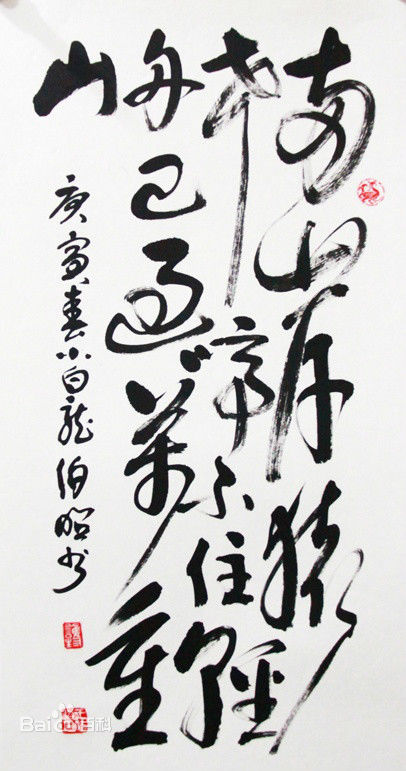 两岸猿
声啼不住輕
舟已过萬重
山
庚寅春小白龙伯昭书
Bai百科